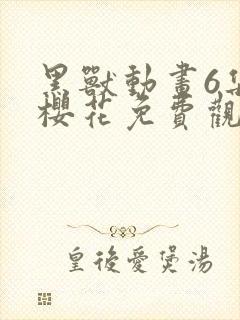 黑獸動畫6集
櫻花免費觀
皇後愛煲湯